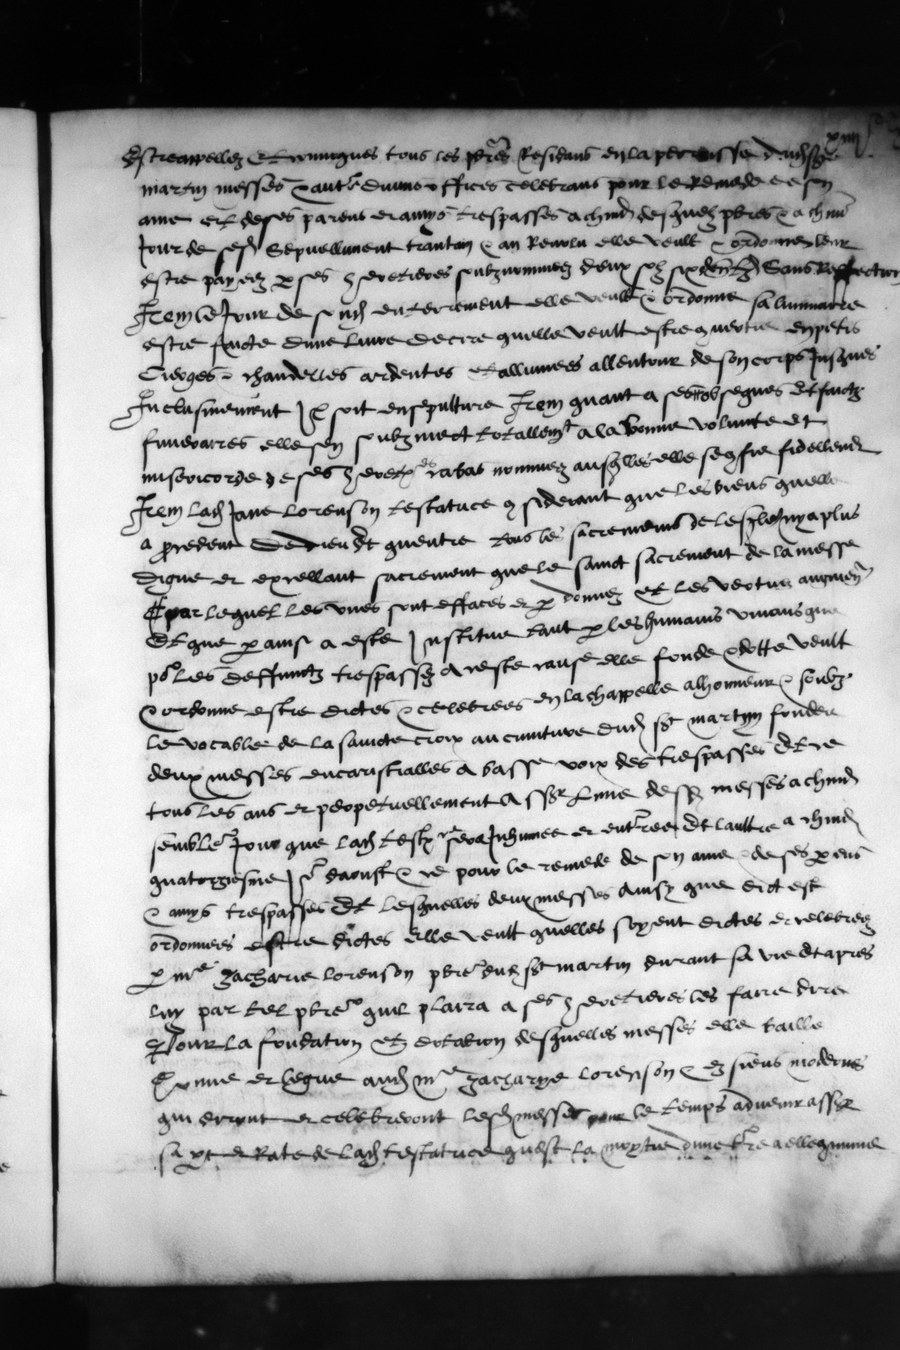 Estre appellez et convoques tous les pbres residans en la perroisse dud st
martin messes & aultres divins offices celebrans pour le Remede de son
ame et de ses parens et amys trespasses a chund desquelz pbres & a chun
Jour de sesd Sepvelliment trantan & an Revolu elle veult & ordonne leur
estre payez p ses heretieres soubznommez deux solz six den tz Sans Reffection
Item le Jour de sond enterrement elle veult & ordonne sa luminaire
estre faicte dune livre de cire quelle veult estre quertie en petis
Cierges & chandelles ardentes et allumees allentour de son corps Jusques
Inclusivement soit ensepulture Item quant a ses obseques et faictz
funeraires elle sen soubzmect totallemt a la bonne volunte et
misericorde de ses heretrs cabas nommez ausqlles elle se confie fidellement
Item lad Jane Lorenson testatrice considerant que les biens quelle
a procedent de dieu et quentre tous les sacremens de leglise ny a plus
digne et excellant sacrement que le sainct sacrement de la messe
par lequel les vices sont effaces et pdonnez et les vertus augmen
Et que p ainsi a este Institue tant p les humains vivans que
pr les deffunctz trespassez A ceste cause elle fonde & dotte veult
& ordonne estre dictes & celebrees en la chappelle a lhonneur & soubz
le vocable de la saincte croix au cimitiere dud st martin fondee
deux messes encaristialles a basse voix des trespasses et ce
tous les ans et perpetuellement Assr lune desd messes a chund
semblel Jour que lad testr sera Inhumee et enterree et laultre a chund
quatorziesme Jr daoust & ce pour le remede de son ame & de ses pens
& amys trespasses Et lesquelles deux messes ainsy que dict est
ordonnees estre dictes Elle veult quelles soyent dictes et celebrees
p mre Zacharie Lorenson pbre dud st martin durant sa vie et apres
luy par tel pbre quil plaira a ses heretieres les faire dire
Pour la fondation et dotation desquelles messes elle baille
donne et legue aud mre Zacharye Lorenson & es siens modernes
qui diront et celebreront lesd messes pour le temps advenir assr
sa pt et Rate de lad testatrice quest la moytie dune tre a elle